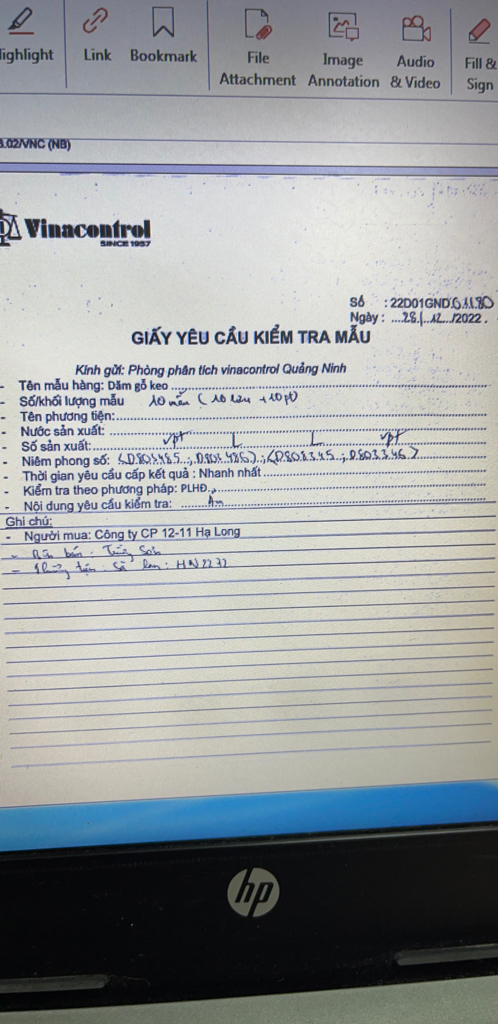 Highlight
Link
Bookmark
File Attachment
Image Annotation
Audio & Video
Fill & Sign
3.02/VNC (NB)
Vinacontrol
SINCE 1957
Số : 22D01GND01180
Ngày : ...28../..12../2022.
GIẤY YÊU CẦU KIỂM TRA MẪU
Kính gửi: Phòng phân tích vinacontrol Quảng Ninh
- Tên mẫu hàng: Dăm gỗ keo
- Số/khối lượng mẫu 10 mẫu ( 10 lưu + 10 pt)
- Tên phương tiện:
- Nước sản xuất:
- Số sản xuất: vpt L L vpt
- Niêm phong số: (D803485 ; D803486) ; (D803345 ; D803346)
- Thời gian yêu cầu cấp kết quả : Nhanh nhất
- Kiểm tra theo phương pháp: PLHĐ
- Nội dung yêu cầu kiểm tra: Ẩm
Ghi chú:
- Người mua: Công ty CP 12-11 Hạ Long
- bán :
- Sà lan : HN2272
hp